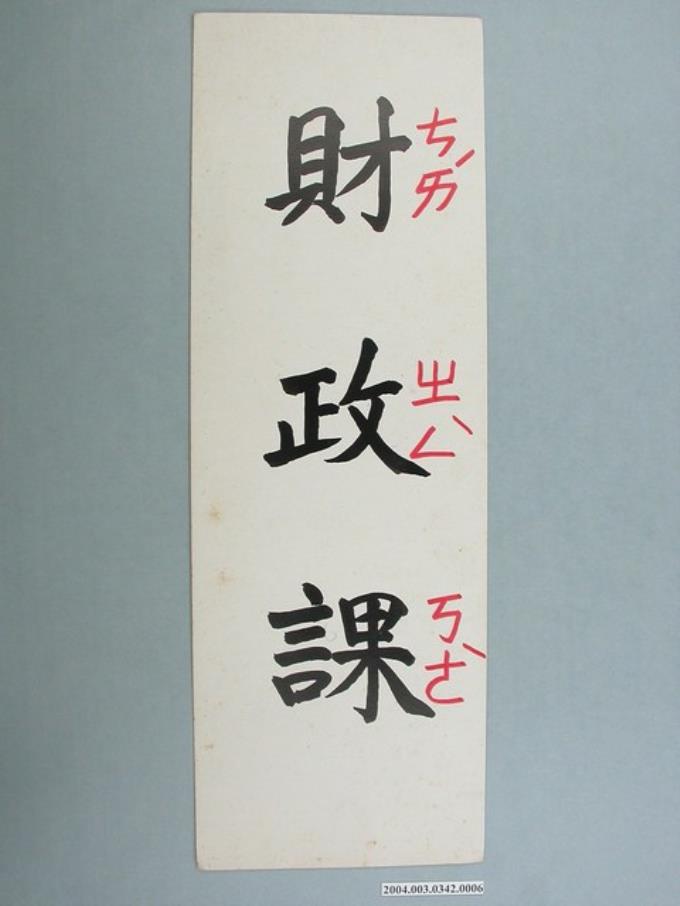 財政課
ㄘㄞˊ ㄓㄥˋ ㄎㄜˋ
2004.003.0342.0006